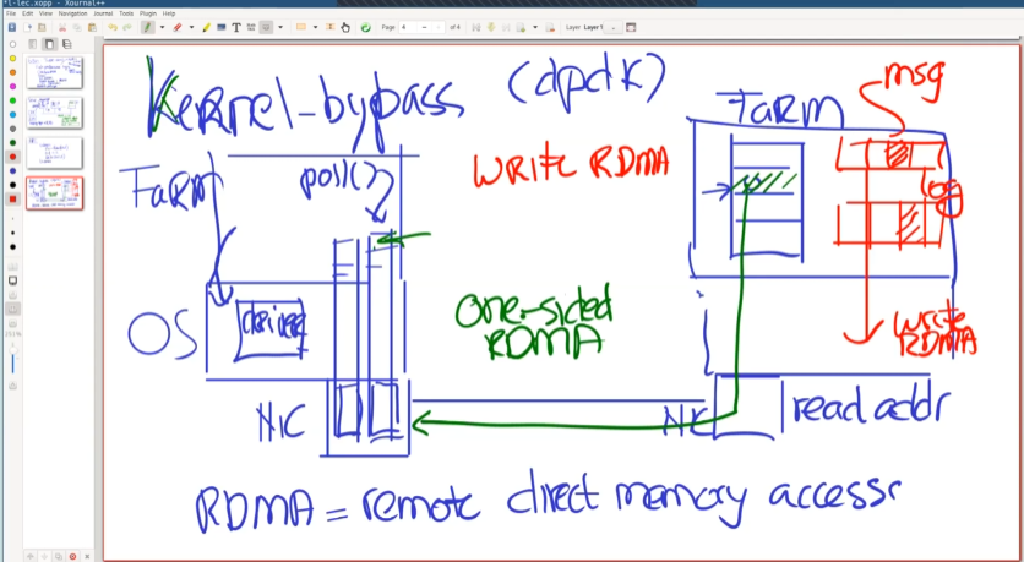 *l-lec.xopp - Xournal++
File Edit View Navigation Journal Tools Plugin Help
Page 4 of 4 Layer Layer 1
Kernel-bypass (dpdk)
msg
FaRM
WRite RDMA
FaRM
poll()
log
one-sided
RDMA
OS
write
RDMA
NIC
NIC
read addr
RDMA = remote direct memory access